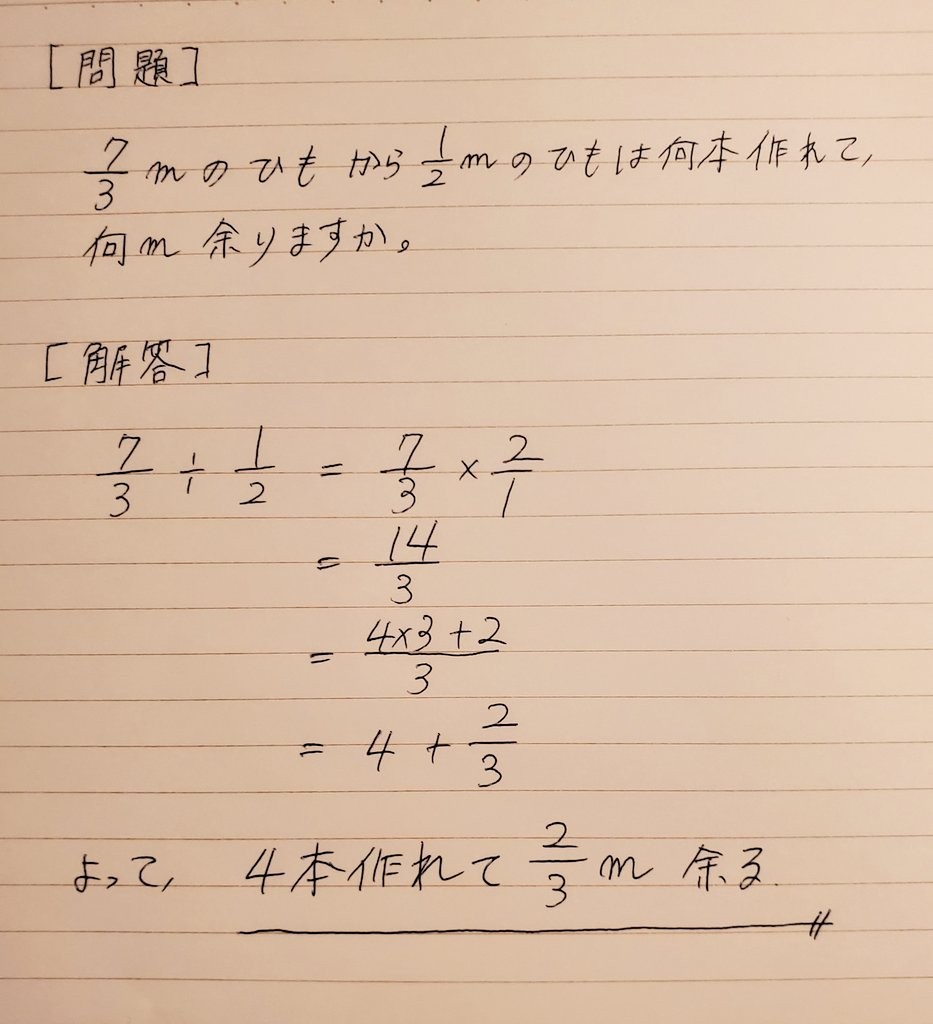 [問題]
7/3 m のひもから 1/2 m のひもは何本作れて,
何m 余りますか。
[解答]
7/3 ÷ 1/2 = 7/3 × 2/1
= 14/3
= (4×3+2)/3
= 4 + 2/3
よって, 4本作れて 2/3 m 余る.